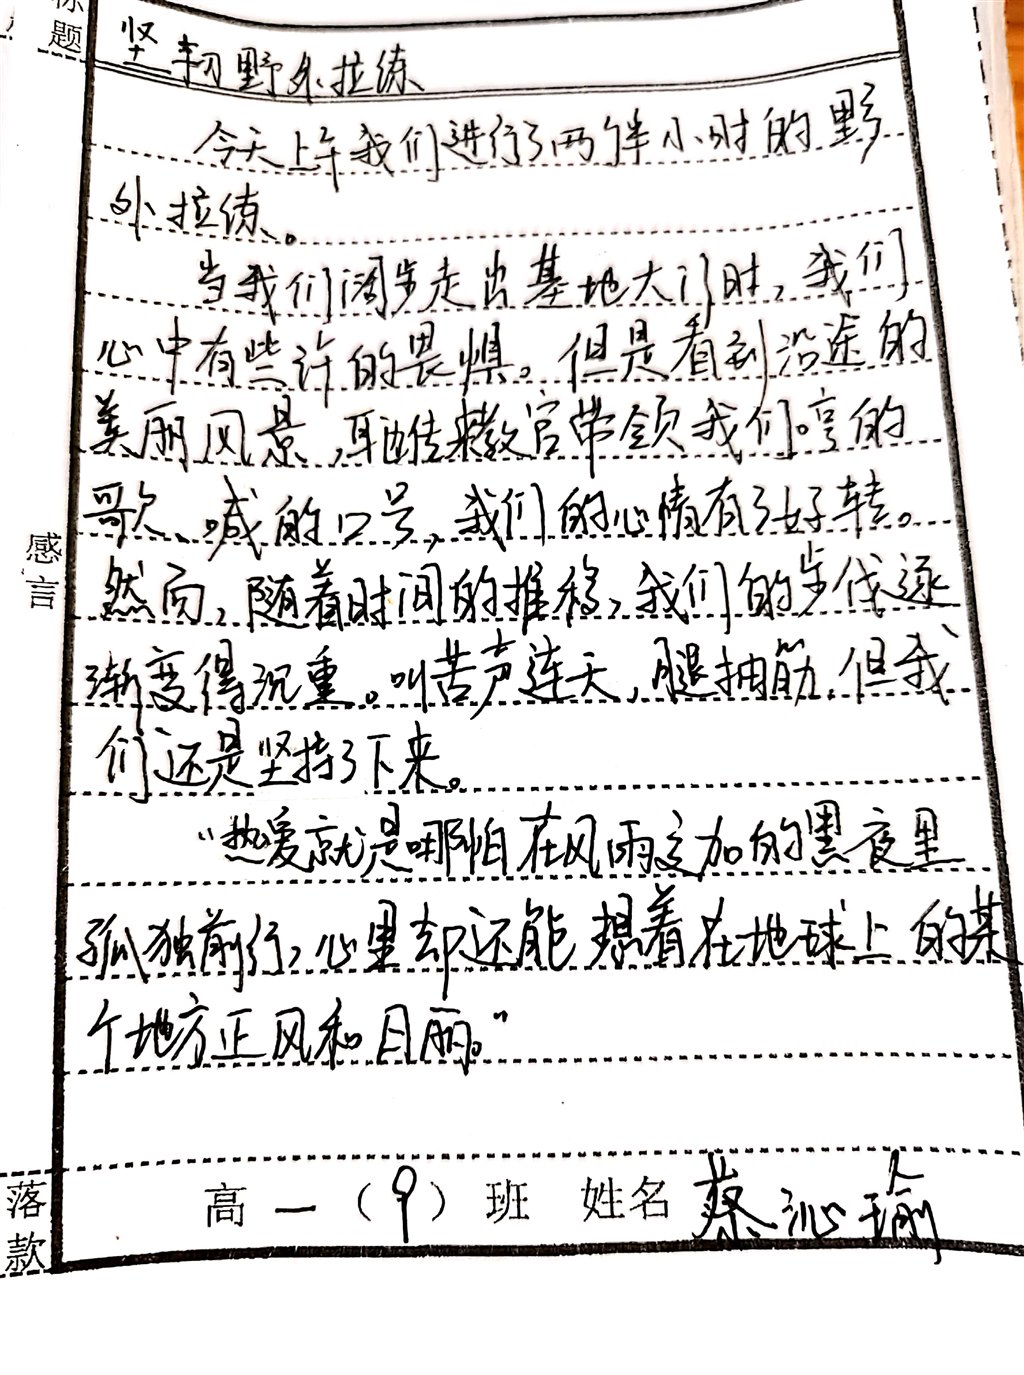 标题
坚韧野外拉练
今天上午我们进行了两个半小时的野
外拉练。
当我们阔步走出基地大门时，我们
心中有些许的畏惧。但是看到沿途的
美丽风景，耳畔传来教官带领我们哼的
歌、喊的口号，我们的心情有了好转。
然而，随着时间的推移，我们的步伐逐
渐变得沉重。叫苦声连天，腿抽筋，但我
们还是坚持了下来。
感言
“热爱就是哪怕在风雨交加的黑夜里
孤独前行，心里却还能想着在地球上的某
个地方正风和日丽。”
落款
高一（9）班 姓名 蔡沁瑜